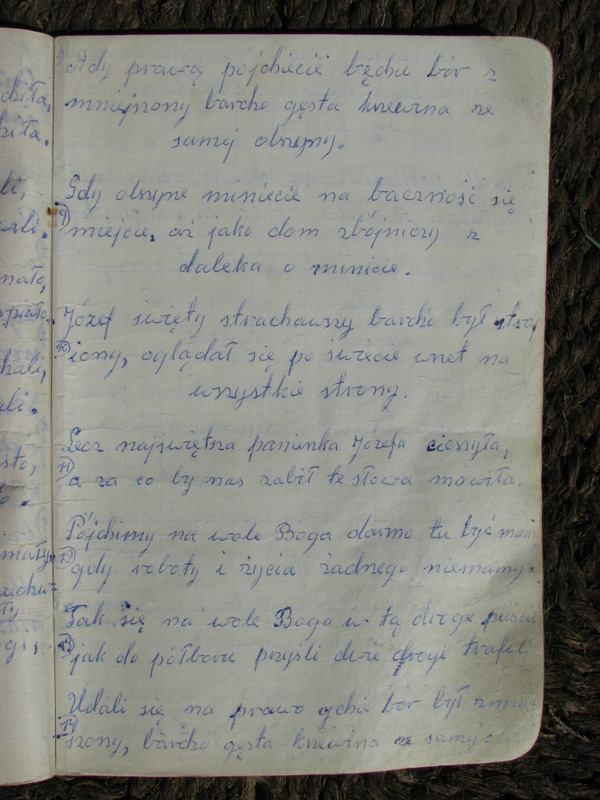 dziła,
Gdy prawą pójdziecie będzie bór z
mniejszony bardzo gęsta krzewina ze
samej olszyny.
Gdy olszyne miniecie na baczność się
9) miejcie, aż jako dom zbójniczy z
daleka o minicie.
Józef święty strachawszy bardzo był strap
10) iony, oglądał się po świecie wnet na
wszystkie strony.
Lecz najświętsza panienka Józefa cieszyła,
11) a za co by nas zabił te słowa mowiła.
Pójdzimy na wole Boga darmo tu być mam
12) gdy roboty i życia żadnego niemamy.
Tak się na wole Boga w tą droge puścili
13) jak do półboru przyśli dwie droge trafili
Udali się na prawo gdzie bór był zmniej
14) szony, bardzo gęsta krzewina ze samej